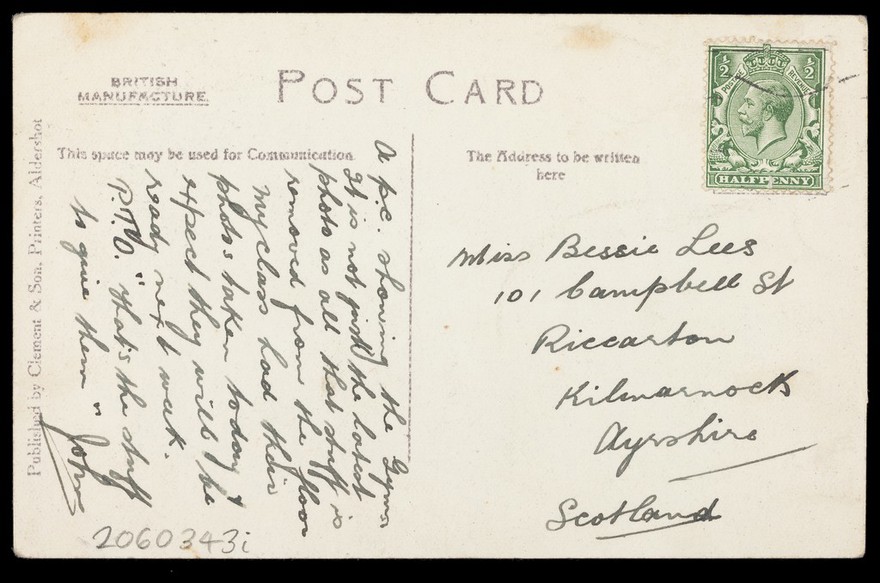 BRITISH
MANUFACTURE.
POST CARD
This space may be used for Communication
The Address to be written
here
A p.c. showing the Gymn.
It is not just the latest
photo as all that stuff is
removed from the floor
My class had their
photos taken today &
expect they will be
ready next week.
P.T.O. "that's the stuff
to give them" John
½ ½
POSTAGE REVENUE
HALFPENNY
Miss Bessie Lees
101 Campbell St
Riccarton
Kilmarnock
Ayrshire
Scotland
Published by Clement & Son, Printers, Aldershot
2060343i